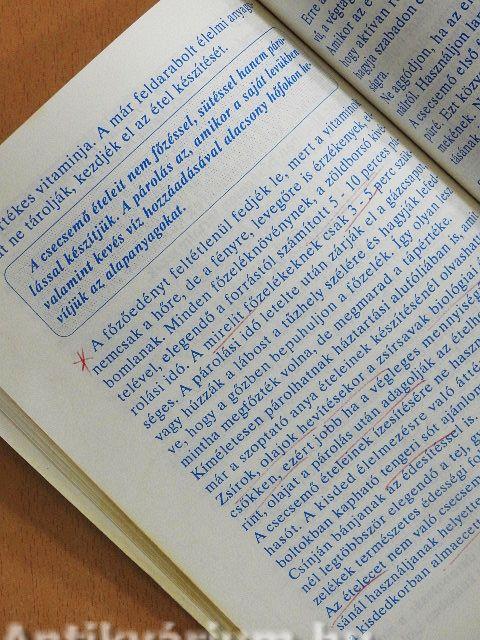 tékes vitaminja. A már feldarabolt élelmi anyag
ne tárolják, kezdjék el az étel készítését.
A csecsemő ételeit nem főzéssel, sütéssel hanem páro-
lással készítjük. A párolás az, amikor a saját levükben
valamint kevés víz hozzáadásával alacsony hőfokon he-
vítjük az alapanyagokat.
A főzőedényt feltétlenül fedjék le, mert a vitaminok
nemcsak a hőre, de a fényre, levegőre is érzékenyek,
bomlanak. Minden főzeléknövénynek, a zöldborsó kivé-
telével, elegendő a forrástól számított 5 - 10 perces pá-
rolási idő. A mirelit főzelékeknek csak 2 - 5 perc szük-
séges. A párolási idő letelte után zárják el a gázempa
vagy húzzák a lábost a tűzhely szélére és hagyják lefed-
ve, hogy a gőzben bepuhuljon a főzelék. Így olyan lesz
mintha megfőzték volna, de megmarad a tápértéke.
Kíméletesen párolhatnak háztartási alufóliában is, amit
már a szoptató anya ételeinek készítésénél olvashat
Zsírok, olajok hevítésekor a zsírsavak biológiai
csökken, ezért jobb ha a végleges mennyiség
rint, olajat a párolás után adagolják az ételh
A csecsemő ételeinek ízesítésére ne haszn
hasót. A kisded élelmezésre való átté
boltokban kapható tengeri sót ajánlom
Csínján bánjanak az édesítéssel is.
nél legtöbbször elegendő a tej, g
zelékek természetes édessége
Az ételecet nem való csecsem
sánál használjanak helyette
a kisdedkorban almaecet
Erre
vú, a végtag
Amikor az é
hogy aktívan r
hagyja szabadon é
sára.
Ne aggódjon, ha az er
ruhról. Használjon la
A csecsemő első f
püre. Ezt köz
Antikvárium.hu